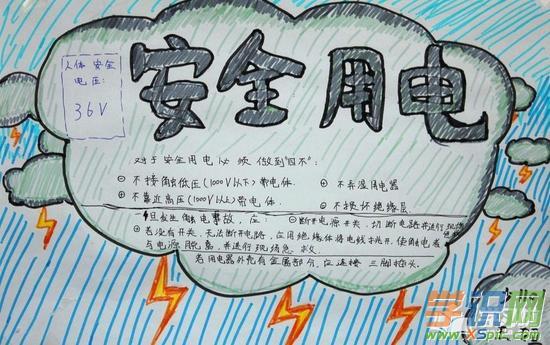 安全用电
人体安全
电压:
36V
对于安全用电必须做到“四不”:
不接触低压(1000V以下)带电体
不弄湿用电器
不靠近高压(1000V以上)带电体
不损坏绝缘层
一旦发生触电事故,应 断开电源开关,切断电路并进行现场
若没有开关,无法断开电路,应用绝缘体将电线挑开,使触电者
与电源脱离,并进行现场急救
若用电器外壳有金属部分,应连接三脚插头.
学识网
www.xspic.com